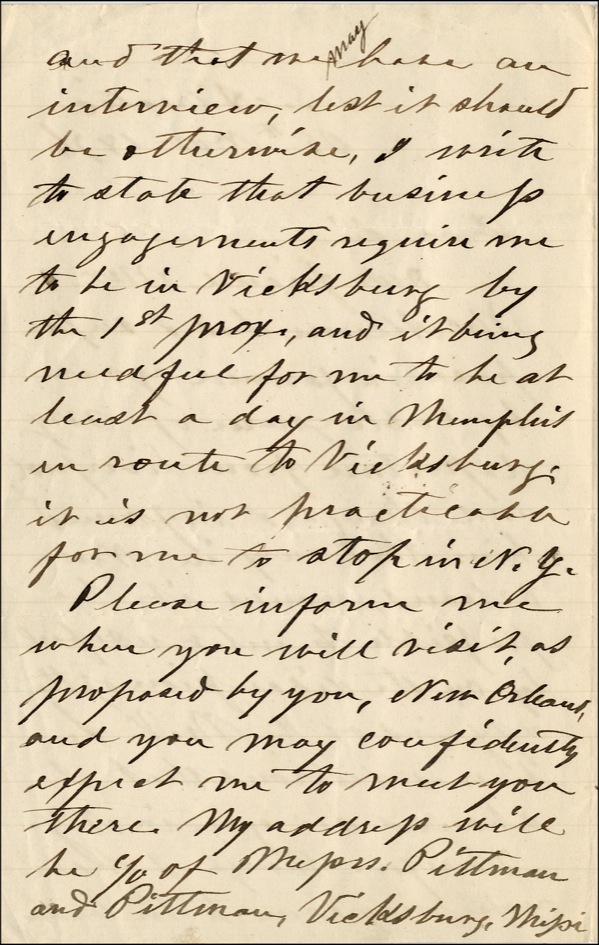 and that we may have an
interview, lest it should
be otherwise, I write
to state that business
engagements require me
to be in Vicksburg by
the 1st prox., and it being
needful for me to be at
least a day in Memphis
in route to Vicksburg,
it is not practicable
for me to stop in N. Y.
Please inform me
when you will visit, as
proposed by you, New Orleans,
and you may confidently
expect me to meet you
there. My address will
be c/o of Messrs. Pittman
and Pittman, Vicksburg, Missi